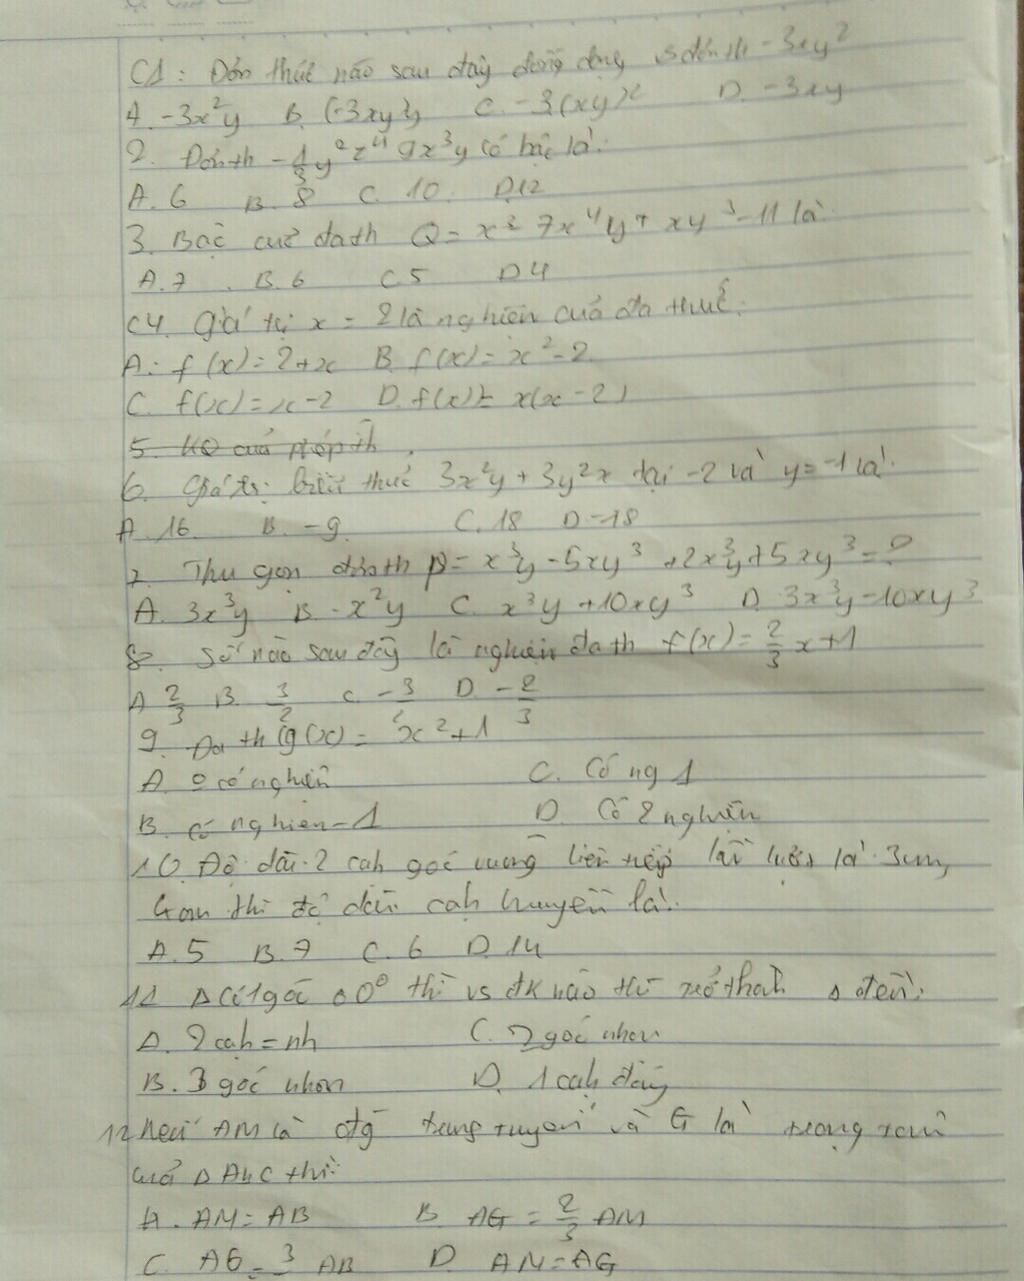 C1: Đơn thức nào sau đây đồng dạng vs đơn th -3xy²
A. -3x²y B. (-3xy)y C. -3(xy)² D. -3xy
2. Đơn th -1/3 y² z⁴ 9x³y có bậc là:
A. 6 B. 8 C. 10. D. 12
3. Bậc cuả đa th Q = x³ 7x⁴y + xy³ - 11 là
A. 7. B. 6 C. 5 D. 4
C4. Giá trị x = 2 là nghiệm cuả đa thức:
A. f(x) = 2+x B. f(x) = x² - 2.
C. f(x) = x - 2 D. f(x) = x(x - 2)
5. KQ cuả phép th
6. Giá trị biểu thức 3x²y + 3y²x tại -2 và y = -1 là
A. 16. B. -9. C. 18 D. -18
7. Thu gọn đth P = x³y - 5xy³ + 2x³y + 5xy³ = ?
A. 3x³y B. -x²y C. x³y + 10xy³ D. 3x³y - 10xy³
8. Số nào sau đây là nghiệm đa th f(x) = 2/3 x + 1
A 2/3 B. 3/2 C. -3/2 D. -2/3
9. Đa th g(x) = x² + 1
A. 0 có nghiệm C. Có ng 1
B. có nghiệm -1 D. Có 2 nghiệm
10. Độ dài 2 cạh góc vuông liên tiếp lần lượt là 3cm,
4cm thì độ dài cạh huyền là:
A. 5 B. 7 C. 6 D. 14
11 Δ có 1 góc 60⁰ thì vs đk nào thì trở thàh Δ đều:
A. 2 cạh = nh C. 2 góc nhọn
B. 3 góc nhọn D. 1 cạh đáy
12 Nếu AM là đg trung tuyến và G là trọng tâm
cuả Δ ABC thì:
A. AM = AB B. AG = 2/3 AM
C. AG = 3 AB D. AM = AG